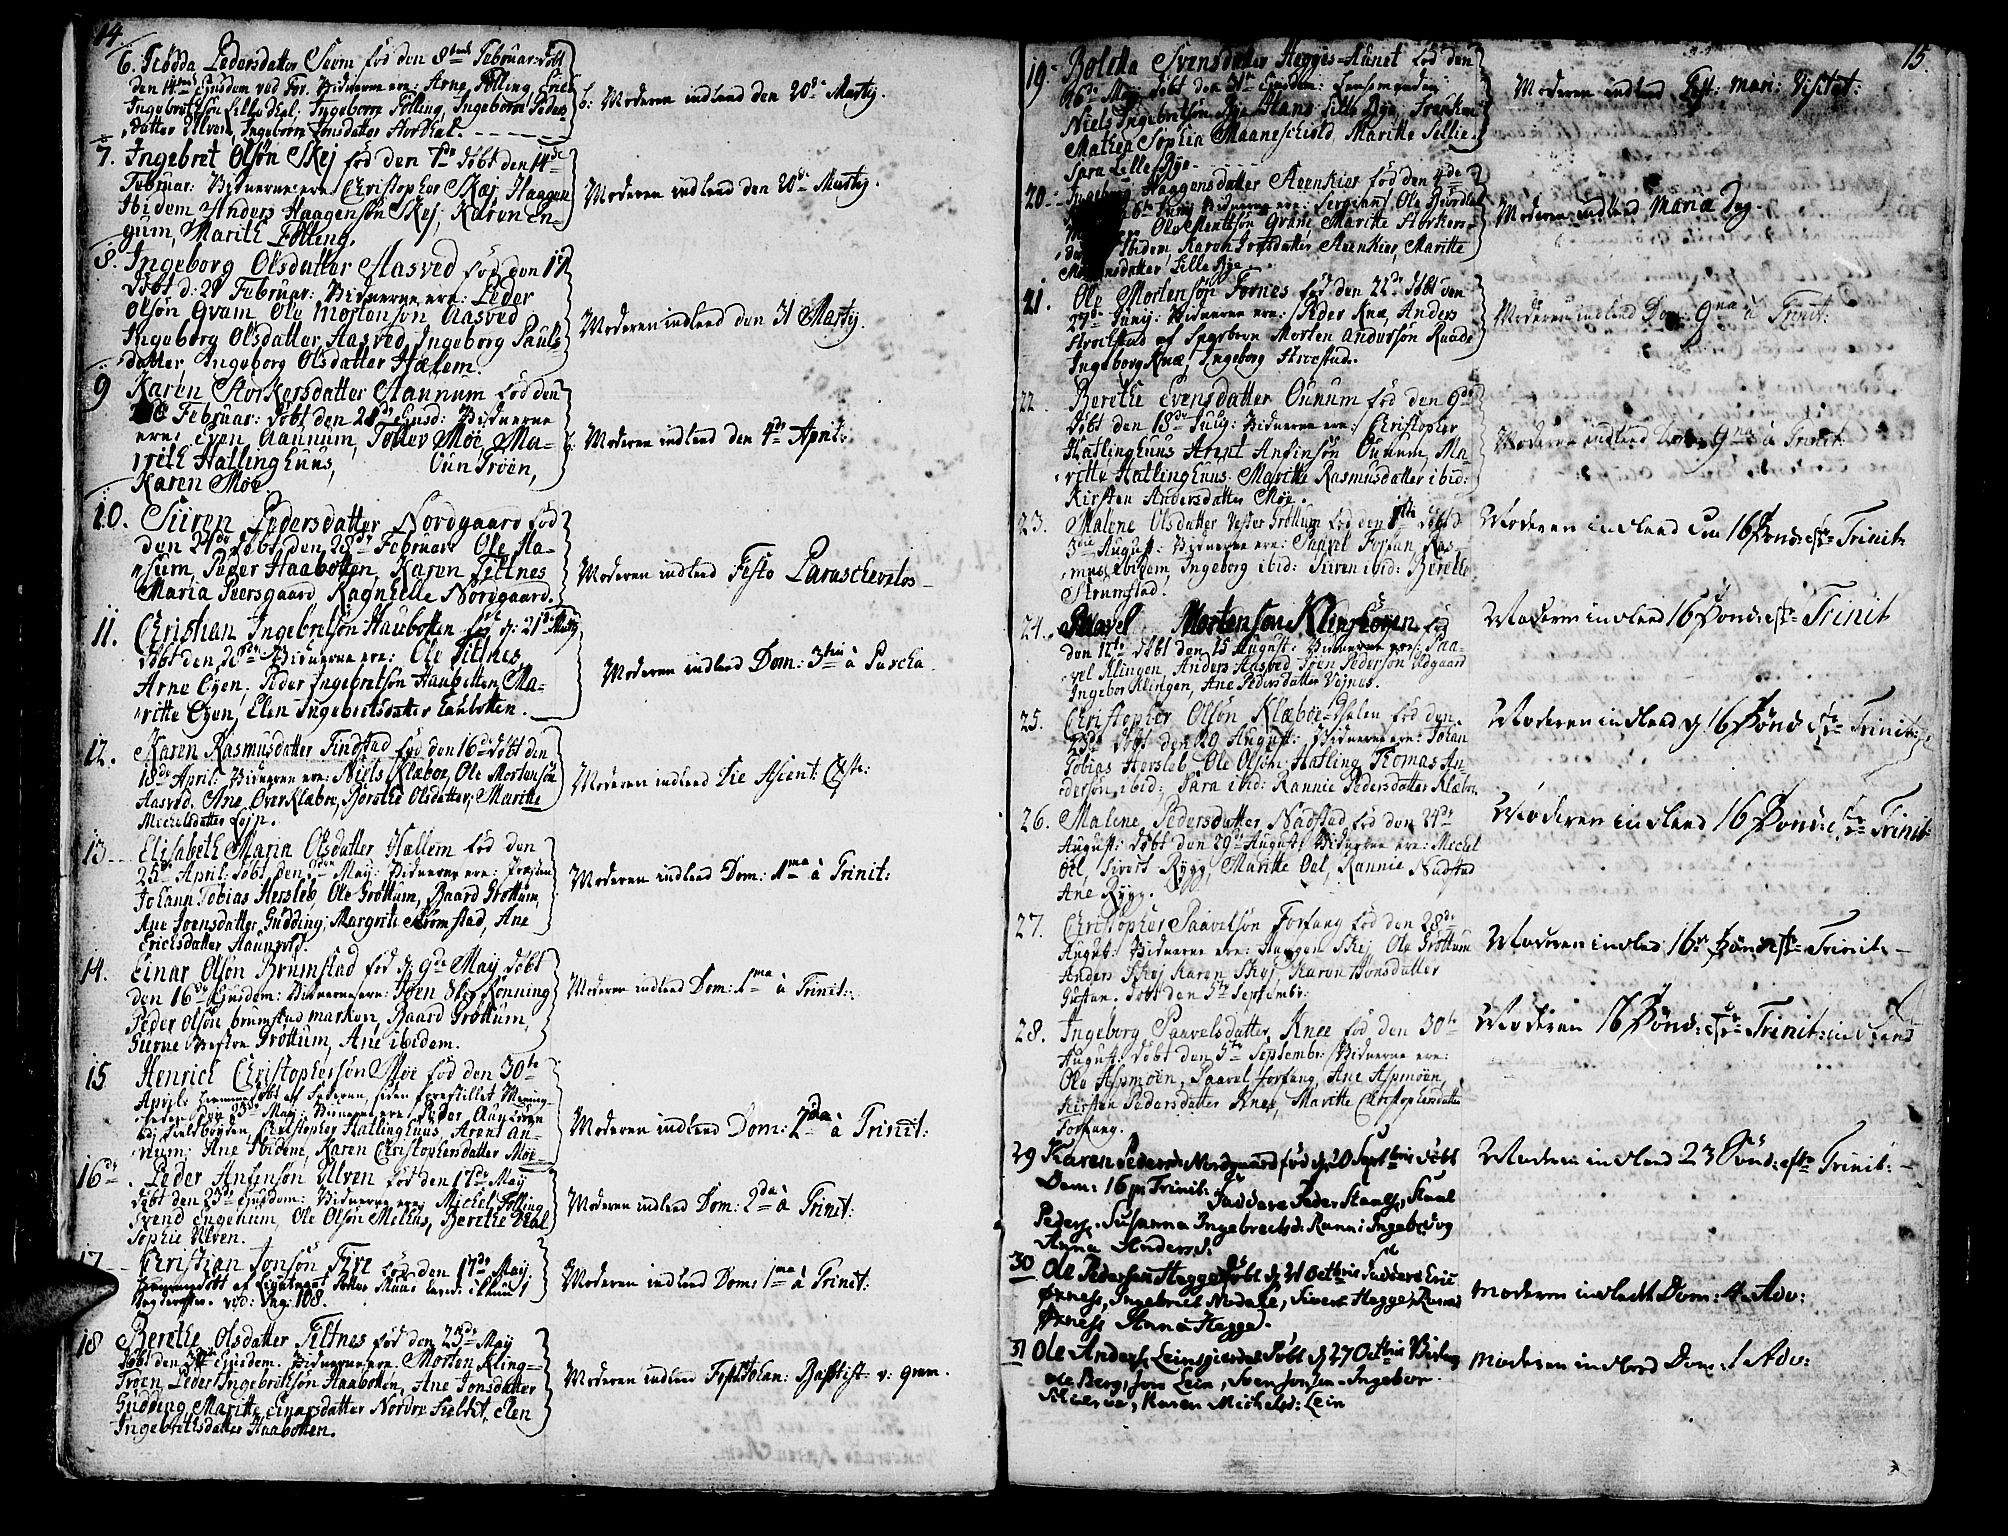 14.
6. Pedersdatter Seem föd den 8de Februar: döbt
den 14de Ejusdem ved For. Vidnerne ere: Arne Fölling,
Ingebretsön Lille Dhal, Ingeborre Fölling, Ingeborre Peder-
datter Ulven, Ingeborre Jonsdatter Hordhal.
6. Moderen indleed den 20de Martij.
7. Ingebret Olsön Skej föd den 7de döbt den 14de
Februar: Vidnerne ere Christopher Skej, Haagen
Ibidem Anders Haagensön Skej, Karen En-
gum, Marith Fölling.
Moderen indleed den 20de Martij.
8. Ingeborg Olsdatter Aasved föd den 17
döbt d: 21 Februar: Vidnerne ere: Peder
Olsön Qvam Ole Mortensön Aasved
Ingeborg Olsdatter Aasved, Ingeborg Pauls-
datter, Ingeborg Olsdatter Hælem.
Moderen indleed den 31 Martij.
9 Karen Storkersdatter Aaunum föd den
Februar: döbt den 28de Ejusd: Vidnerne
ere: Even Aaunum, Tolle Möe, Ma-
rith Hallinghuus, Oun Tröen,
Karen Möe.
Moderen indleed den 4de April:
10. Siiren Pedersdatter Nordgaard föd
den 24de döbt den 28de Februar: Ole Ha-
sum, Peder Haabotten, Karen Tiltnes
Maria Peersgaard Ragnille Nordgaard.
Moderen indleed Festo Paraschevelos
11. Christian Ingebretsön Haubotten föd d: 21de Martij
döbt den 28de Vidnerne ere: Ole Tiltnes,
Arne Öyen, Peder Ingebretsön Haubotten, Ma-
ritte Öyen, Elen Ingebretsdatter Haubotten.
Moderen indleed Dom: 3tia à Pascha
12. Karen Rasmusdatter Findstad föd den 16de döbt den
18de April: Vidnerne ere: Niels Klæboe, Ole Mortensön
Aasved. Ane Over Klæboe, Berethe Olsdatter, Maritte
Michelsdatter Lejn.
Moderen indleed Die Ascent: Christi:
13. Elisabeth Maria Olsdatter Hællem föd den
25de April: döbt den May: Vidnerne ere: Præsten
Johann Tobias Hersleb, Ole Gröttum, Baard Gröttum,
Ane Joensdatter Gudding, Margrete Strömstad, Ane
Erichsdatter Haunvold.
Moderen indleed Dom: 1ma à Trinit:
14. Einar Olsön Brumstad föd d 9de Maij döbt
den 16de Ejusdem: Vidnerne ere: Joen Over Rønning
Peder Olsön brumstad marken, Baard Gröttum,
Gurne Vestre Gröttum, Ane ibidem.
Moderen indleed Dom: 1ma à Trinit:
15 Henrich Christophersön Möe föd den 30te
April: hiemme döbt af Faderen, siden forestillet Menig-
heden den 23de May: Vidnerne ere: Peder
Christopher Hallinghuus, Arent An-
num: Ane Ibidem, Karen Christophersdatter Möe
Moderen indleed Dom: 2da à Trinit:
16de. Peder Anfensön Ulven föd den 17de May
döbt den 23de Ejusdem: Vidnerne ere: Michel Fölling
Svend Engehum, Ole Olsön Melhus, Berethe Dhal
Sophie Ulven.
Moderen indleed Dom: 2da à Trinit:
17. Christian Jonsön Five föd den 17de May
hiemmedöbt af Lieutenant
vid: Pag: 108.
Moderen indleed Dom: 1ma à Trinit:
18 Berethe Olsdatter Tiltnes föd den 25de Maij
döbt den 30te Ejusdem. Vidnerne ere: Morten Kling-
Tröen, Peder Ingebretsön Haabotten, Ane Jonsdatter
Gudding, Maritte Einersdatter Nordre Fieldet, Elen
Ingebretsdatter Haabotten.
Moderen indleed Fest: Johan: Baptist: v: qvam.
15.
19. Boletta Svensdatter Hegges-Aunet föd den
26de May döbt den 31te Ejusdem: Lensmanden
Niels Ingebretsön Rye, Hans Lille Rye, Frøuken
Mathea Sophia Maaneschiold, Maritte Sellie,
Sara Lille Rye.
Moderen indleed Fest: mari: Visitat:
20. Ingeborg Haggensdatter Steenkier föd den 4de
6te Junij Vidnerne ere: Sergeant Ole Biordal
Ole Mentsön Qvam, Maritte Storkers-
Ibidem, Karen Joensdatter Steenkier, Maritte
datter Lille Rye.
Moderen indleed Mariæ Dag.
21. Ole Mortensön Fornes föd den 22de döbt den
27de Junij: Vidnerne ere: Peder Knæ, Anders
Stroelstad af Sparboen Morten Andersön Raade
Ingeborg Knæ, Ingeborg Stroelstad.
Moderen indleed Dom: 9na à Trinit:
22. Berethe Evensdatter Ounum föd den 9de
döbt den 18de Juli: Vidnerne ere: Christopher
Hatlinghuus Arent Anfinsön Ounum, Ma-
ritte Hatlinghuus. Maritte Rasmusdatter ibid:
Kirsten Andersdatter Möe.
Moderen indleed Dom: 9na à Trinit:
23. Malene Olsdatter Vester Gröttum föd den 1ste döbt d
3die August: Vidnerne ere: Paavel Forfan, Ras-
mus, Ibidem, Ingeborg ibid: Siiren ibid: Berethe
Strumstad.
Moderen indleed Dom 16 Sönd: efter Trinit:
24. Paavel Mortensön Klingsöyen föd
den 12te döbt den 15 August: Vidnerne ere: Paa-
vel Klingen, Anders Aasved, Joen Pedersön Udgaard
Ingebor Klingen, Ane Pedersdatter Vojnus.
Moderen indleed 16 Sönd: efter Trinit
25. Christopher Olsön Klæboe-Dhalen föd den
23de döbt den 29 August: Vidnerne ere: Johan
Tobias Hersleb Ole Olsön Hatling Thomas An-
dersön ibid:, Sara ibid: Rannie Pedersdatter Klæboe.
Moderen indleed d 16 Sönd: efter Trinit:
26. Malene Pedersdatter Nadstad föd den 24de
August: döbt den 29de August: Vidnerne ere: Michel
Oel, Sivert Rygg, Maritte Oel, Rannie Nadstad
Ane Rygg.
Moderen indleed 16 Sönd: efter Trinit:
27. Christopher Paavelsön Forfang föd den 28de
August: Vidnerne ere: Haagen Skej, Ole Gröttum
Anders Skej Karen Skej Karen Hansdatter
Gustan. Döbt den 5te Septembr:
Moderen indleed 16de Sönd: efter Trinit:
28. Ingeborg Paavelsdatter, Knee föd den 30te
August: döbt den 5te Septembr: Vidnerne ere:
Ole Aspmoen, Paavel Forfang, Ane Aspmoen
Kirsten Pedersdatter Knes, Maritte Christophersdatter
Forfang.
Moderen 16 Sönd: efter Trinit: indleed
29 Karen Pedersd: Nordgaard föd d 20 Septbris döbt
Dom: 16 p: Trinit: Faddere Peder Staals, Staal
Peders. Susanna Ingebretsd: Ranni Ingebr: og
Anna Andersd:
Moderen indleed 23 Sönd: efter Trinit:
30 Ole Pedersen Hegge döbt d 21 Octbris Faddere Eric
Örness, Ingebrict Nedahe, Sivert Hegge, Rannei
Örness Anna Hegge.
Moderen indledt Dom: 4 Adv:
31 Ole Anders. Leinsgierdet döbt d 27 Octbris Vidn
Ole Berg, Jon Lein, Sven Jonsen Ingebor
Karen Michelsd: Lein
Moderen indleed Dom: 1 Adv: